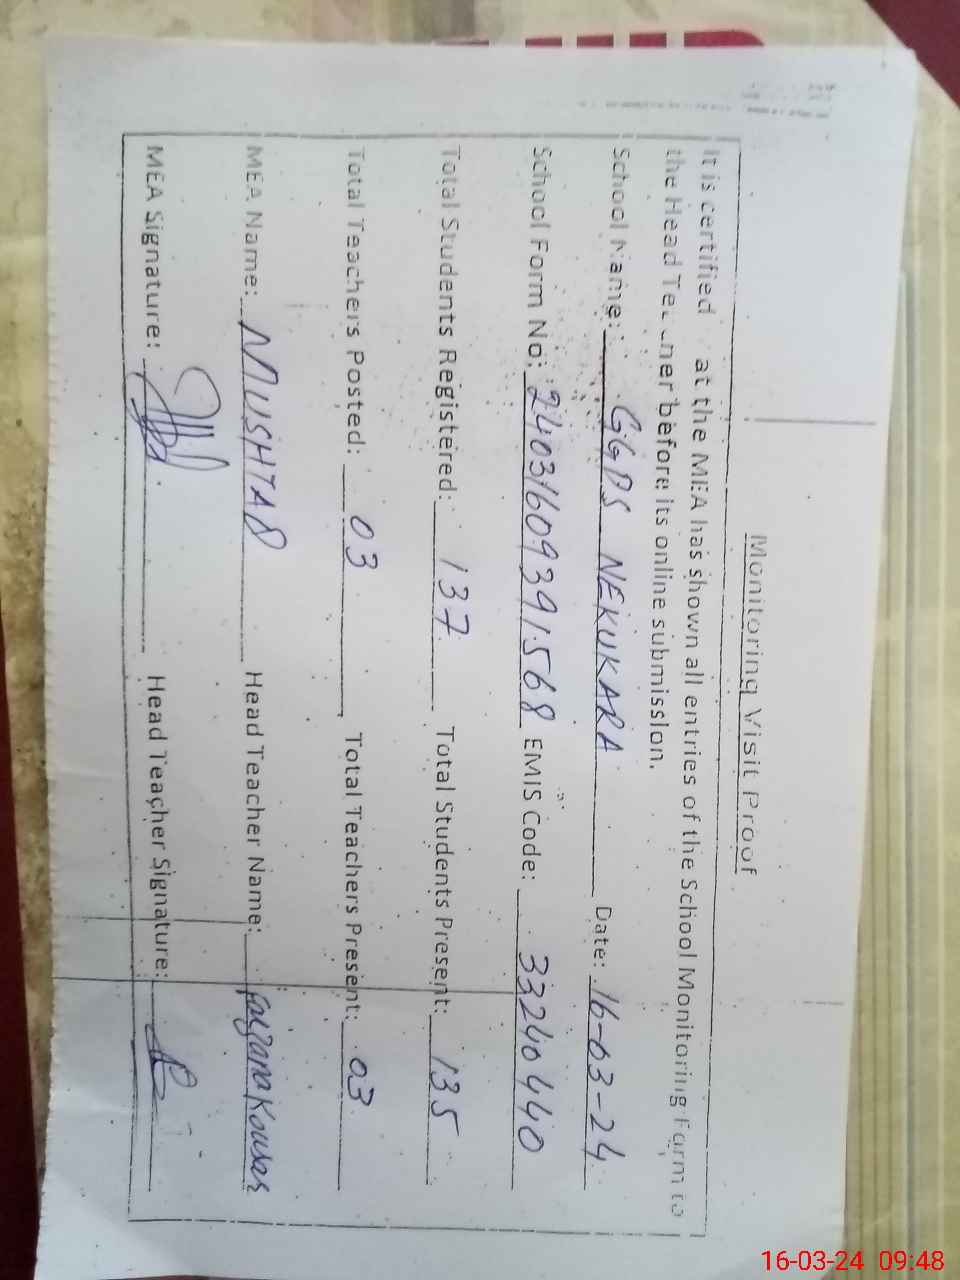 Monitoring Visit Proof
It is certified at the MEA has shown all entries of the School Monitoring Form to
the Head Teacher before its online submission.
School Name: GGPS NEKUKARA Date: 16-03-24
School Form No: 24031609391568 EMIS Code: 33240440
Total Students Registered: 137 Total Students Present: 135
Total Teachers Posted: 03 Total Teachers Present: 03
MEA Name: MUSHTAQ Head Teacher Name: fayzana Kousar
MEA Signature: Head Teacher Signature:
16-03-24 09:48